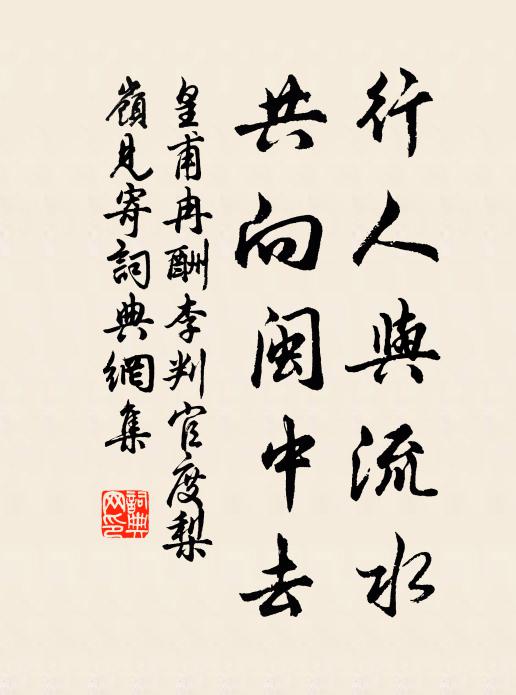 行人與流水
共向閩中去
皇甫冉酬李判官度梨
嶺見寄詞典網集
詞典
网印